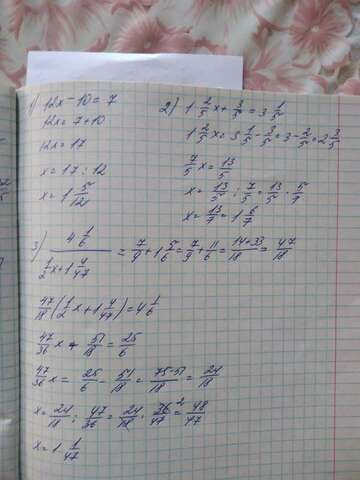 1) 12x - 10 = 7
12x = 7 + 10
12x = 17
x = 17 : 12
x = 1 5/12
2) 1 2/5 x + 3/5 = 3 1/5
1 2/5 x = 3 1/5 - 3/5 = 3 - 2/5 = 2 3/5
7/5 x = 13/5
x = 13/5 : 7/5 = 13/5 · 5/7
x = 13/7 = 1 6/7
3) 4 1/6 / (1/2 x + 1 4/47) = 7/9 + 1 5/6 = 7/9 + 11/6 = (14+33)/18 = 47/18
47/18 (1/2 x + 1 4/47) = 4 1/6
47/36 x + 51/18 = 25/6
47/36 x = 25/6 - 51/18 = (75-51)/18 = 24/18
x = 24/18 : 47/36 = 24/18 · 36 2/47 = 48/47
x = 1 1/47